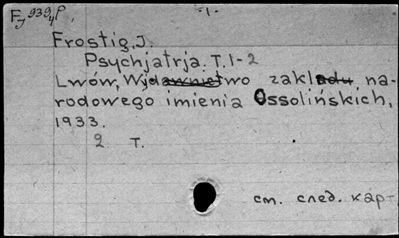 -1-
Frostig, J.
Psychjatrja. T. 1-2
Lwów, Wydawnictwo zakładu na-
rodowego imienia Ossolińskich,
1933.
2 T.
см. след. кар-